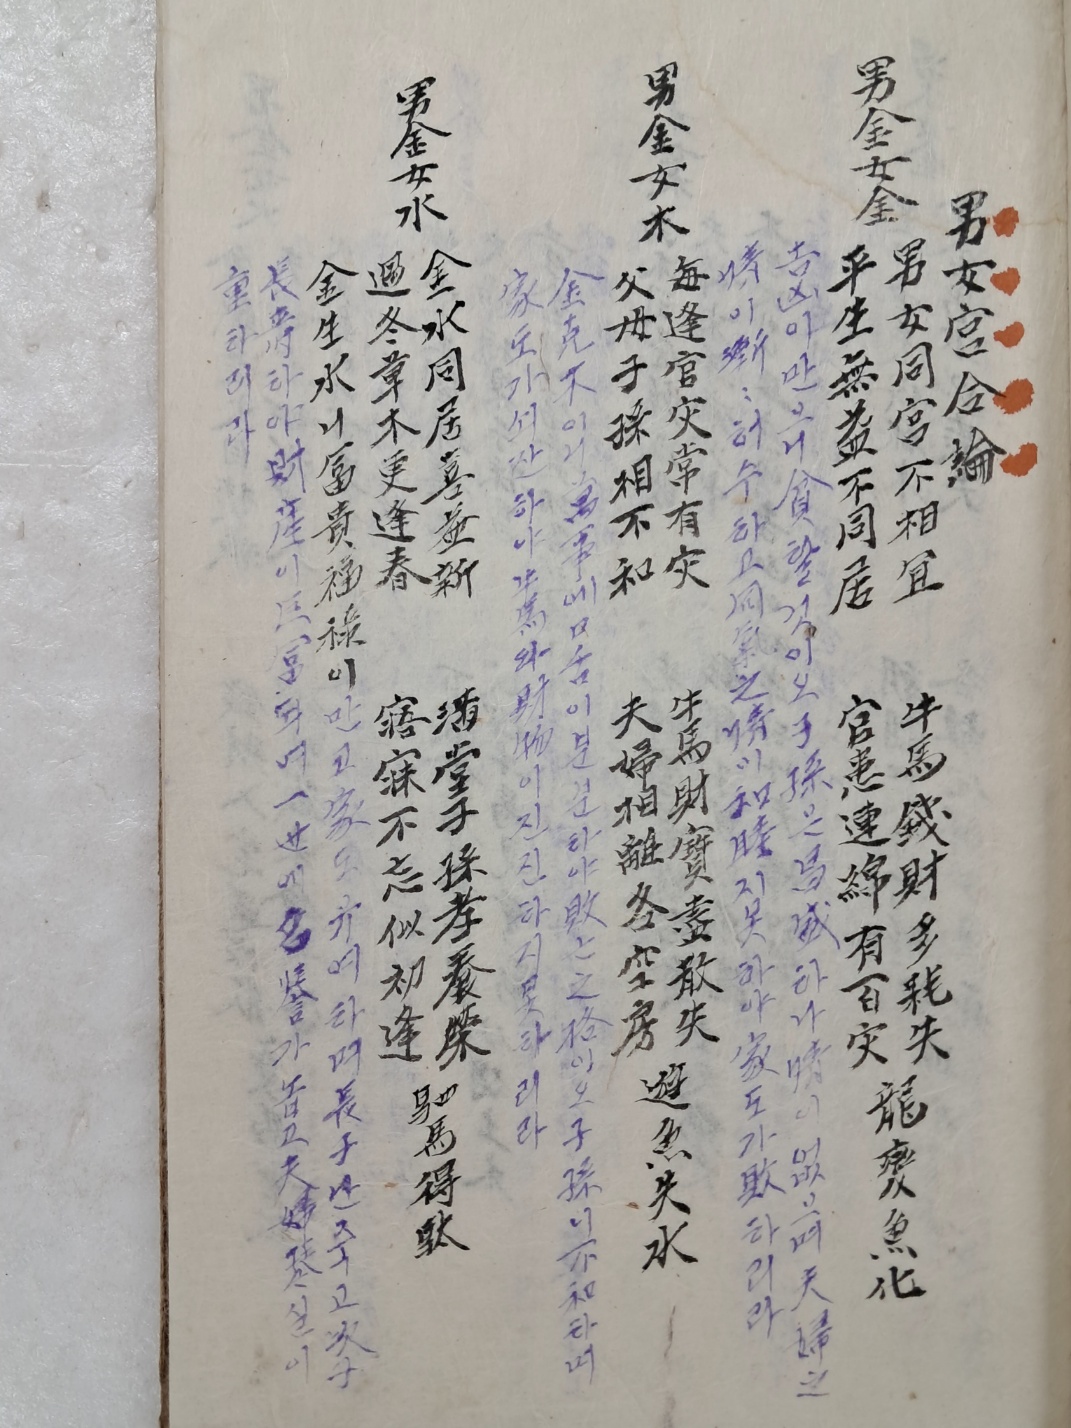 男女宮合論
男金女金
男女同宮不相宜
平生無益不同居
牛馬錢財多耗失
官患連綿有百灾
龍變魚化
吉凶이만으니貧할거이오子孫은昌盛하나情이없으며夫婦之
情이漸〻허수하고同氣之情이和睦지못하야家道가敗하리라
男金女木
每逢官灾常有灾
父母子孫相不和
牛馬財寶盡散失
夫婦相離各空房
遊魚失水
金克木이니萬事에口舌이분분하야敗亡之格이오子孫니不和하며
家道가쇠잔하야牛馬와財物이진진하지못하리라
男金女水
金水同居喜益新
過冬草木更逢春
滿堂子孫孝養榮
寤寐不忘似初逢
駟馬得馱
金生水니富貴福祿이만고家道有여하며長子난죽고次子
長壽하야財産이巨富되여一世에名譽가높고夫婦琴실이
重하리라